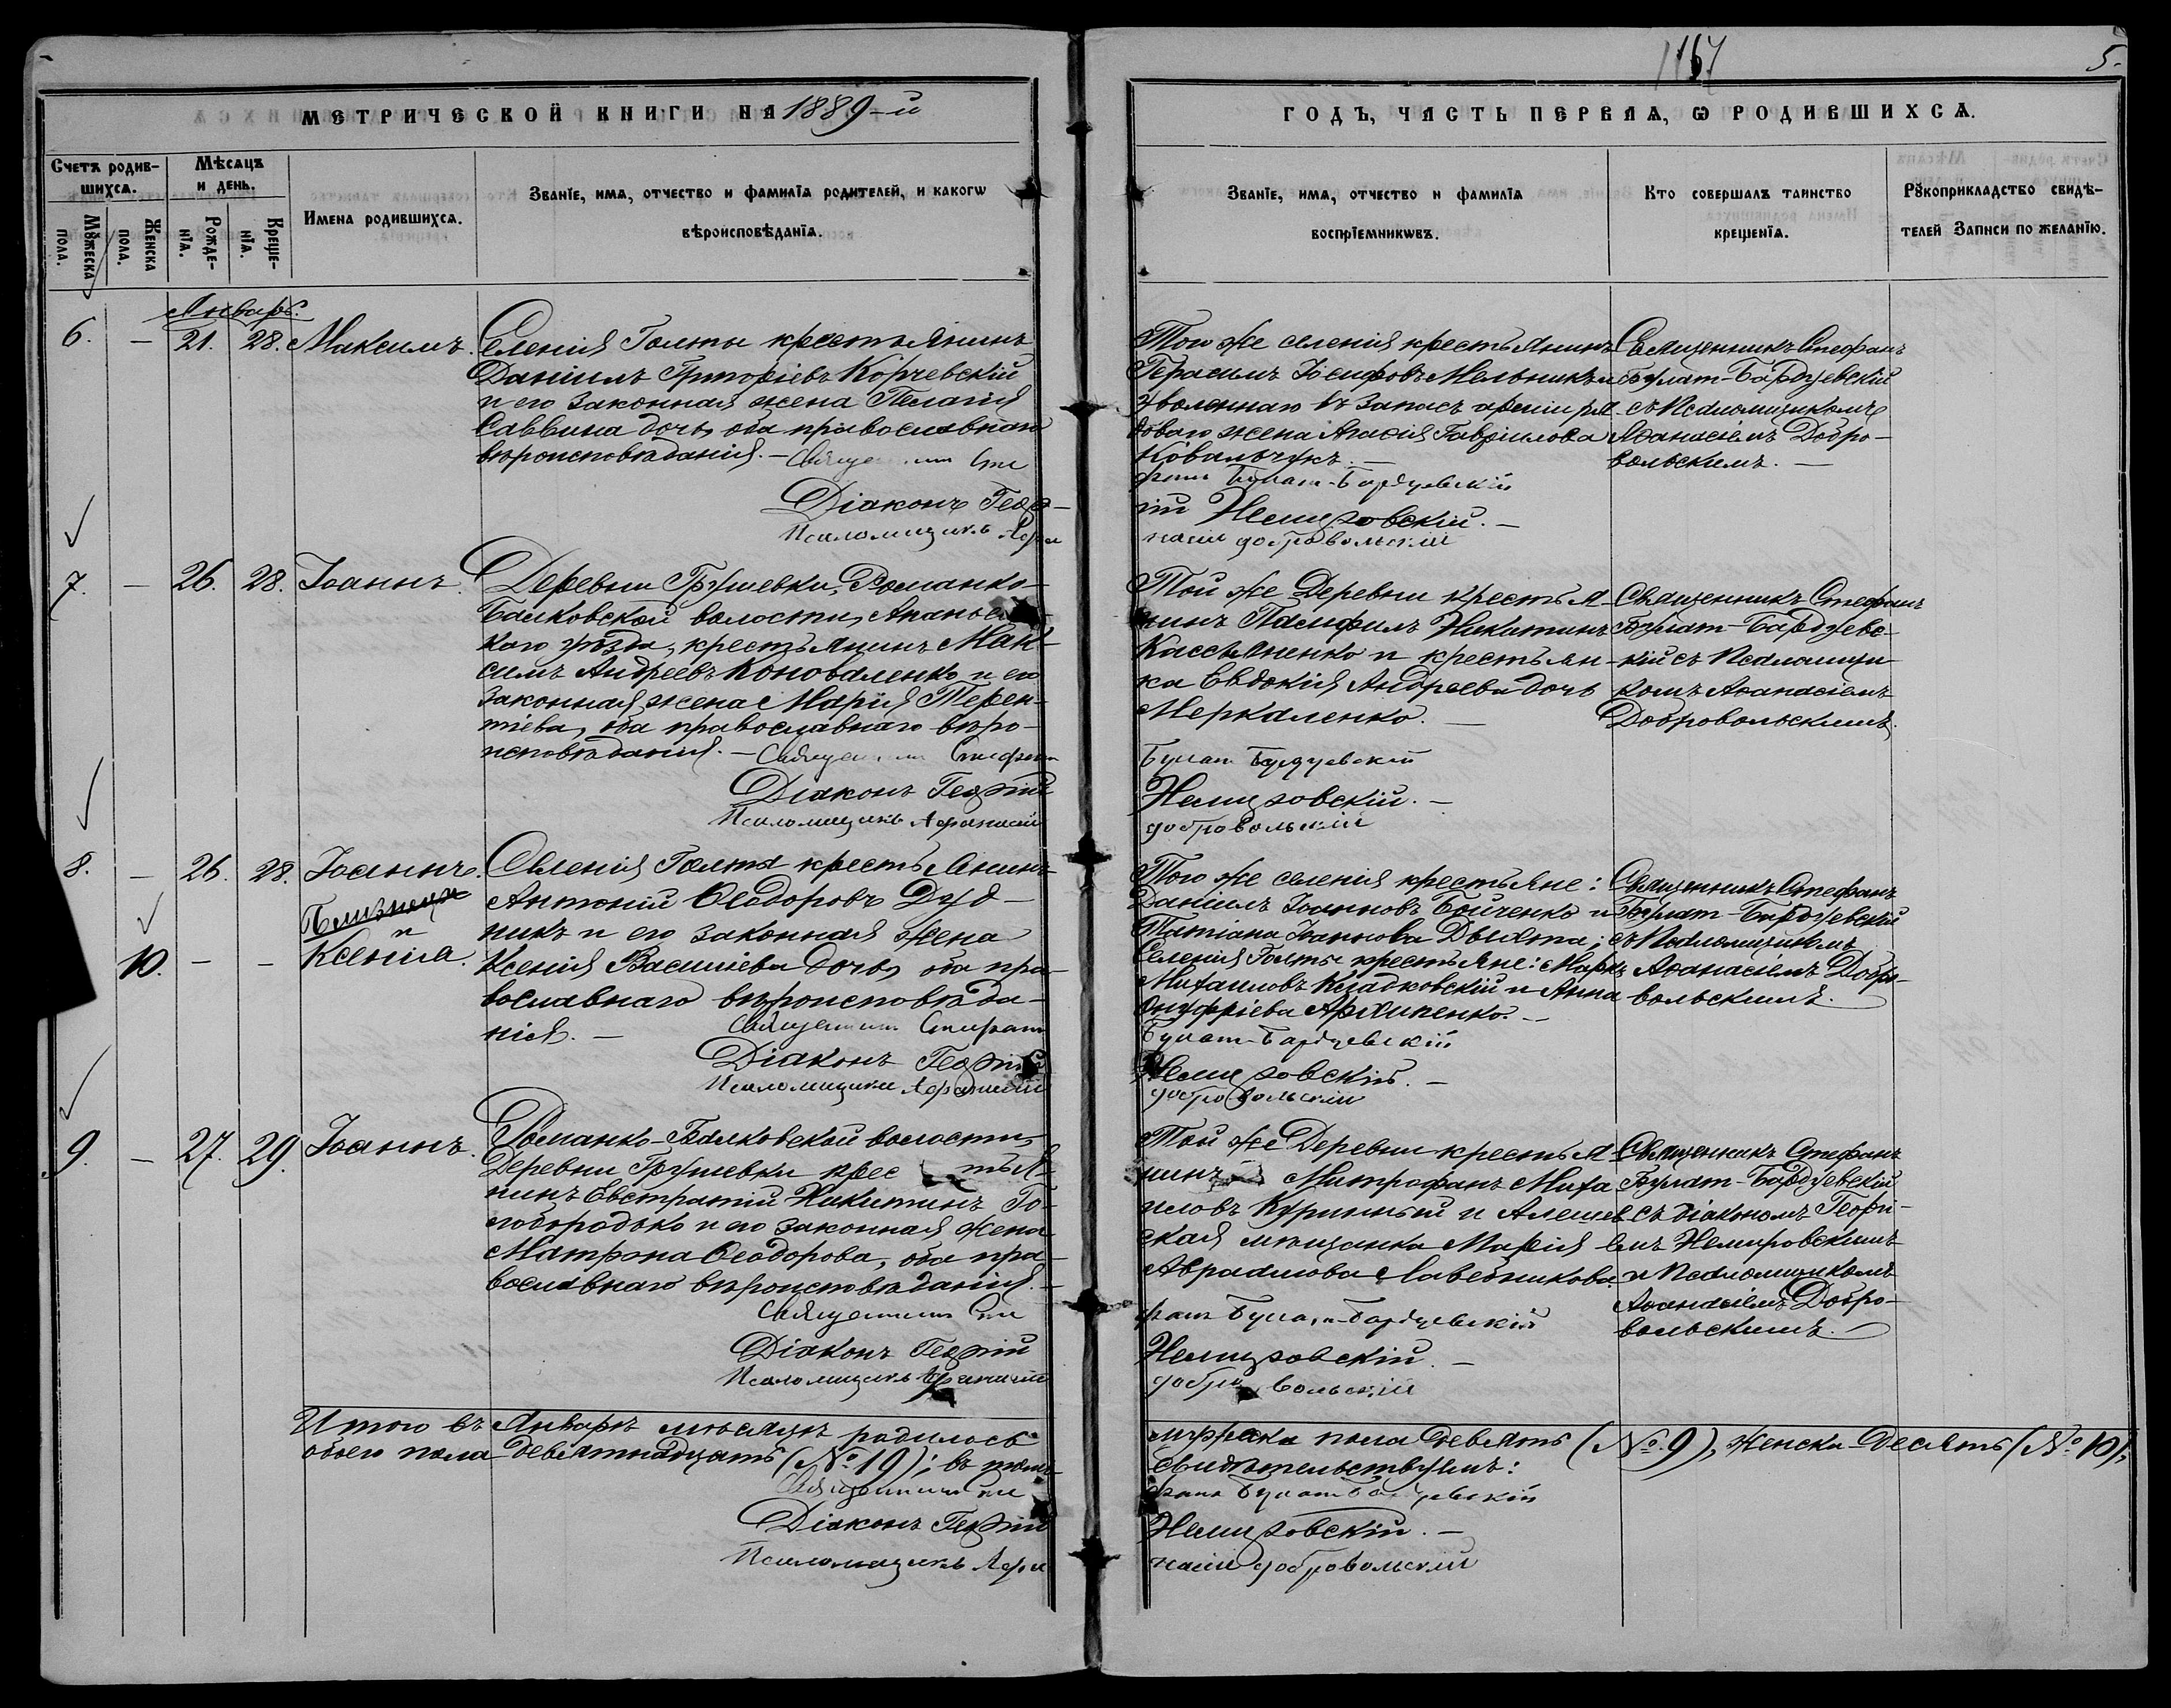 1167
5.
МЕТРИЧЕСКОЙ КНИГИ НА 1889-й
ГОДЪ, ЧАСТЬ ПЕРВАѦ, Ѡ РОДИВШИХСѦ.
Счетъ родив-
шихсѧ.
Мѣсѧцъ
и день.
Мꙋжеска
пола.
Женска
пола.
Рожде-
нїѧ.
Креще-
нїѧ.
Имена родившихсѧ.
Званїе, имѧ, отчество и фамилїѧ родителей, и какогѡ
вѣроисповѣданїѧ.
Званїе, имѧ, отчество и фамилїѧ
воспрїемникѡвъ.
Кто совершалъ таинство
крещенїѧ.
Рꙋкоприкладство свидѣ-
телей записи по желанїю.
Январь.
6. — 21. 28. Максимъ.
Селенія Голты крестьянинъ
Даніилъ Григоріевъ Корчевскій
и его законная жена Пелагія
Саввина дочь, оба православнаго
вѣроисповѣданія. — Священникъ Сте
Діаконъ Геор-
Псаломщикъ Афа
Того же селенія крестьянинъ
Герасимъ Іосифовъ Мельникъ и
уволеннаго въ запасъ арміи ря-
дового жена Агафія Гавріилова
Ковальчукъ. —
фанъ Булат-Бардуевскій
гій Немировскій. —
насій Добровольскій
Священникъ Стефанъ
Булат-Бардуевскій
съ Псаломщикомъ
Аѳанасіемъ Добро-
вольскимъ. —
7. — 26. 28. Іоаннъ.
Деревни Грушевки, Романко-
Балковской волости, Ананьевс-
каго уѣзда, крестьянинъ Мак-
симъ Андреевъ Коноваленко и его
законная жена Марія Терен-
тіева, оба православнаго вѣро-
исповѣданія. — Священникъ Стефан
Діаконъ Георгій
Псаломщикъ Афанасій
Той же деревни крестья-
нинъ Памфилъ Никитинъ
Кассьяненко и крестьян-
ка Евдокія Андреева дочь
Меркаленко. —
Булат Бардуевскій
Немировскій. —
Добровольскій
Священникъ Стефанъ
Булат-Бардуевс-
кій съ Псаломщи-
комъ Аѳанасіемъ
Добровольскимъ.
8. — 26. 28. Іоаннъ.
Близнецы
и
10. — — Ксенія.
Селенія Голты крестьянинъ
Антоній Ѳеодоровъ Дуд-
никъ и его законная жена
Ксенія Василіева дочь, оба пра-
вославнаго вѣроисповѣда-
нія. — Священникъ Стефан
Діаконъ Георгій
Псаломщикъ Афанасій
Того же селенія крестьяне:
Даніилъ Іоанновъ Бойченко и
Татіана Іоаннова Двията;
Селенія Голты крестьяне: Маркъ
Михаиловъ Кладковскій и Анна
Онуфріева Архипенко. —
Булат-Бардуевскій
Немировскій. —
Добровольскій
Священникъ Стефанъ
Булат-Бардуевскій
съ Псаломщикомъ
Аѳанасіемъ Добро-
вольскимъ.
9. — 27. 29. Іоаннъ.
Романко-Балковской волости,
деревни Грушевки крестья-
нинъ Евстратій Никитинъ Го-
лобородько и его законная жена
Матрона Ѳеодорова, оба пра-
вославнаго вѣроисповѣданія. —
Священникъ Сте
Діаконъ Георгій
Псаломщикъ Афанасій
Той же деревни крестья-
нинъ Митрофанъ Миха-
иловъ Куринный и Алешев-
ская мѣщанка Марія
Авраамова Лавебникова.
фанъ Булат-Бардуевскій
Немировскій. —
Добровольскій
Священникъ Стефанъ
Булат-Бардуевскій
съ діакономъ Георгі-
емъ Немировскимъ
и Псаломщикомъ
Аѳанасіемъ Добро-
вольскимъ. —
Итого въ Январѣ мѣсяцѣ родилось
обоего пола девятнадцать (№ 19); въ томъ
Священникъ Сте
Діаконъ Георгій
Псаломщикъ Афа
мужеска пола девять (№ 9), женска — десять (№ 10),
Свидѣтельствуемъ:
фанъ Булат Бардуевскій
Немировскій. —
насій Добровольскій